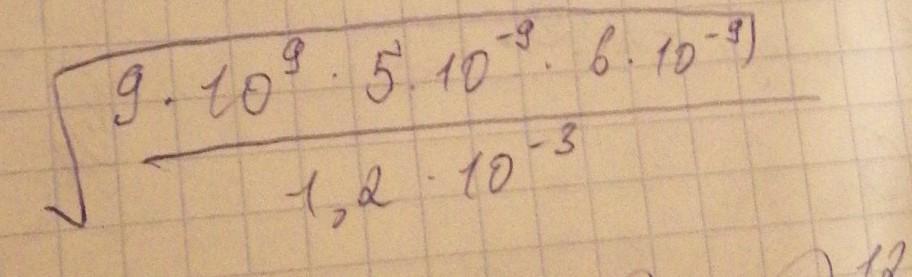 √ 9 · 10⁹ · 5 · 10⁻⁹ · 6 · 10⁻⁹)
1,2 · 10⁻³
12